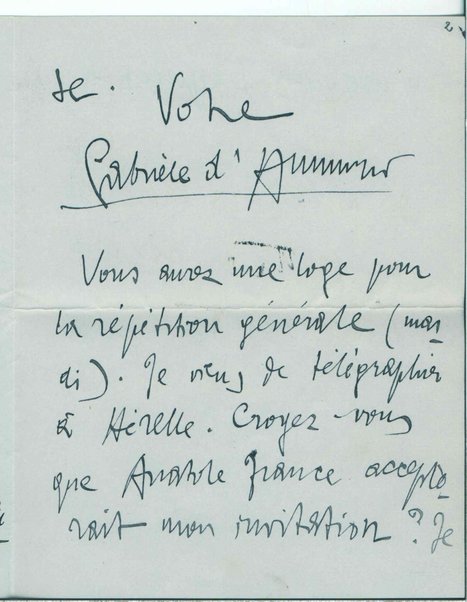 2
se.
Votre
Gabriele d'Annunzio
Vous aurez une loge pour
la répétition générale (mar-
di). Je viens de télégraphier
à Hérelle. Croyez-vous
que Anatole France accepte-
rait mon invitation? Je